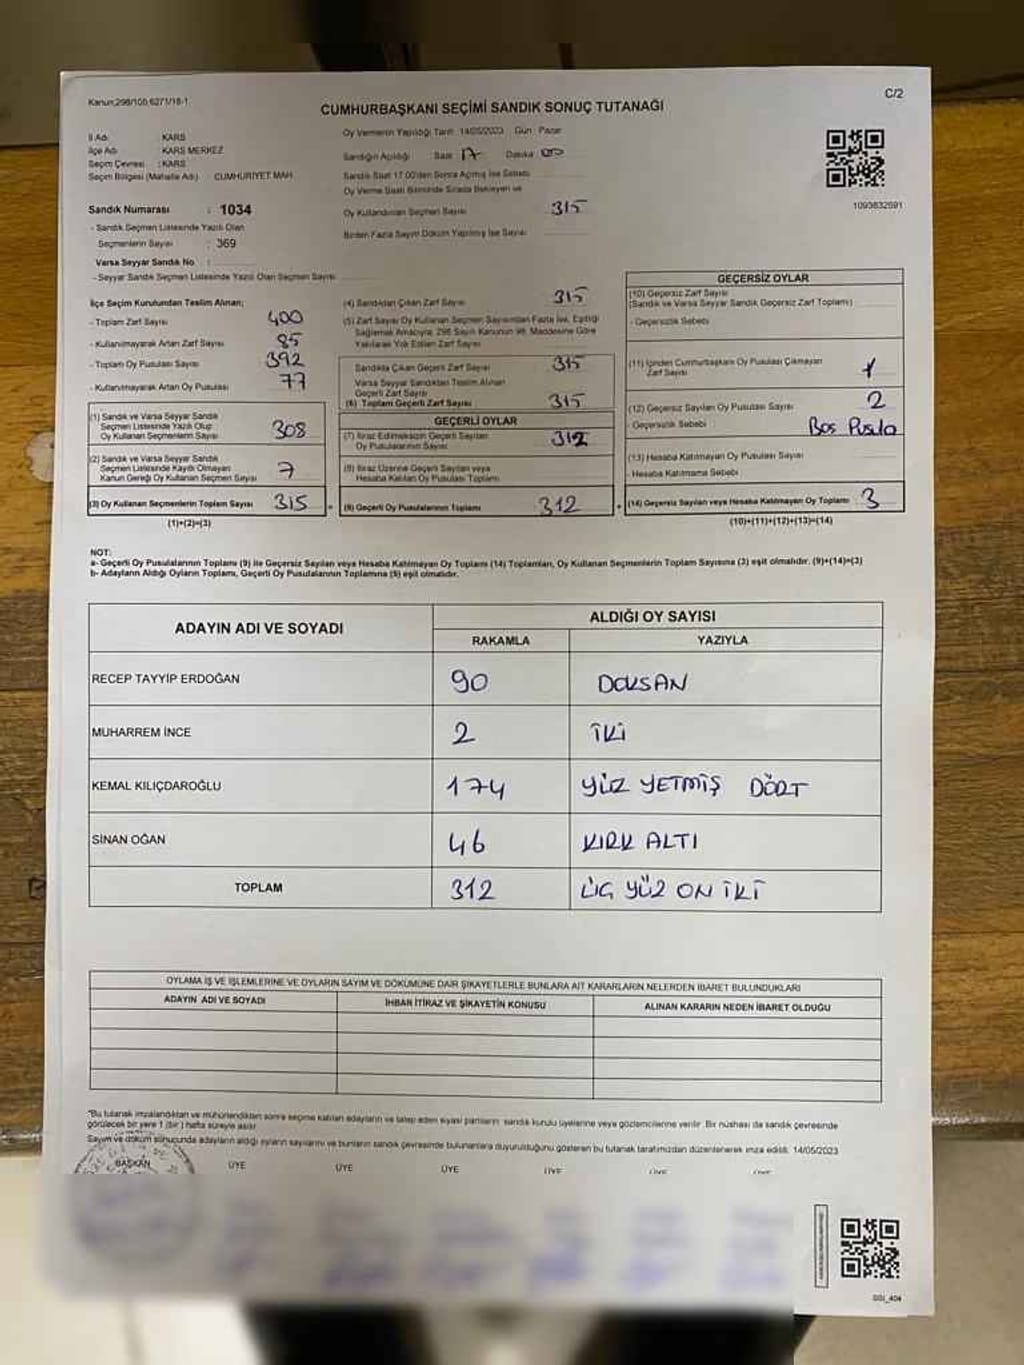 Kanun;298/105,6271/18-1
C/2
CUMHURBAŞKANI SEÇİMİ SANDIK SONUÇ TUTANAĞI
İl Adı : KARS
İlçe Adı : KARS MERKEZ
Seçim Çevresi : KARS
Seçim Bölgesi (Mahalle Adı) CUMHURİYET MAH.
Sandık Numarası : 1034
- Sandık Seçmen Listesinde Yazılı Olan
Seçmenlerin Sayısı : 369
Varsa Seyyar Sandık No :
- Seyyar Sandık Seçmen Listesinde Yazılı Olan Seçmen Sayısı
Oy Vermenin Yapıldığı Tarih: 14/05/2023 Gün: Pazar
Sandığın Açıldığı Saat: 17 Dakika: 00
Sandık Saat 17:00'den Sonra Açılmış İse Sebebi
Oy Verme Saati Bitiminde Sırada Bekleyen ve
Oy Kullandırılan Seçmen Sayısı 315
Birden Fazla Sayım Döküm Yapılmış İse Sayısı
1093632591
İlçe Seçim Kurulundan Teslim Alınan;
- Toplam Zarf Sayısı 400
- Kullanılmayarak Artan Zarf Sayısı 85
- Toplam Oy Pusulası Sayısı 392
- Kullanılmayarak Artan Oy Pusulası 77
(1) Sandık ve Varsa Seyyar Sandık
Seçmen Listesinde Yazılı Olup
Oy Kullanan Seçmenlerin Sayısı 308
(2) Sandık ve Varsa Seyyar Sandık
Seçmen Listesinde Kaydı Olmayan
Kanun Gereği Oy Kullanan Seçmen Sayısı 7
(3) Oy Kullanan Seçmenlerin Toplam Sayısı 315
(1)+(2)=(3)
(4) Sandıktan Çıkan Zarf Sayısı 315
(5) Zarf Sayısı Oy Kullanan Seçmen Sayısından Fazla İse, Eşitliği
Sağlamak Amacıyla, 298 Sayılı Kanunun 98. Maddesine Göre
Yakılarak Yok Edilen Zarf Sayısı
Sandıkta Çıkan Geçerli Zarf Sayısı 315
Varsa Seyyar Sandıktan Teslim Alınan
Geçerli Zarf Sayısı
(6) Toplam Geçerli Zarf Sayısı 315
GEÇERLİ OYLAR
(7) İtiraz Edilmeksizin Geçerli Sayılan
Oy Pusulalarının Sayısı 312
(8) İtiraz Üzerine Geçerli Sayılan veya
Hesaba Katılan Oy Pusulası Toplamı
(9) Geçerli Oy Pusulalarının Toplamı 312
GEÇERSİZ OYLAR
(10) Geçersiz Zarf Sayısı
(Sandık ve Varsa Seyyar Sandık Geçersiz Zarf Toplamı)
- Geçersizlik Sebebi
(11) İçinden Cumhurbaşkanı Oy Pusulası Çıkmayan
Zarf Sayısı 1
(12) Geçersiz Sayılan Oy Pusulası Sayısı 2
- Geçersizlik Sebebi Boş Pusula
(13) Hesaba Katılmayan Oy Pusulası Sayısı
- Hesaba Katılmama Sebebi
(14) Geçersiz Sayılan veya Hesaba Katılmayan Oy Toplamı 3
(10)+(11)+(12)+(13)=(14)
NOT:
a- Geçerli Oy Pusulalarının Toplamı (9) ile Geçersiz Sayılan veya Hesaba Katılmayan Oy Toplamı (14) Toplamları, Oy Kullanan Seçmenlerin Toplam Sayısına (3) eşit olmalıdır. (9)+(14)=(3)
b- Adayların Aldığı Oyların Toplamı, Geçerli Oy Pusulalarının Toplamına (9) eşit olmalıdır.
ADAYIN ADI VE SOYADI
ALDIĞI OY SAYISI
RAKAMLA YAZIYLA
RECEP TAYYİP ERDOĞAN 90 DOKSAN
MUHARREM İNCE 2 İKİ
KEMAL KILIÇDAROĞLU 174 YÜZ YETMİŞ DÖRT
SİNAN OĞAN 46 KIRK ALTI
TOPLAM 312 ÜÇ YÜZ ON İKİ
OYLAMA İŞ VE İŞLEMLERİNE VE OYLARIN SAYIM VE DÖKÜMÜNE DAİR ŞİKAYETLERLE BUNLARA AİT KARARLARIN NELERDEN İBARET BULUNDUKLARI
ADAYIN ADI VE SOYADI İHBAR İTİRAZ VE ŞİKAYETİN KONUSU ALINAN KARARIN NEDEN İBARET OLDUĞU
*Bu tutanak imzalandıktan ve mühürlendikten sonra seçime katılan adayların ve talep eden siyasi partilerin sandık kurulu üyelerine veya gözlemcilerine verilir. Bir nüshası da sandık çevresinde
görülecek bir yere 1 (bir) hafta süreyle asılır
Sayım ve döküm sonucunda adayların aldığı oyların sayılarını ve bunların sandık çevresinde bulunanlara duyurulduğunu gösteren bu tutanak tarafımızdan düzenlenerek imza edildi. 14/05/2023
BAŞKAN ÜYE ÜYE ÜYE ÜYE ÜYE ÜYE